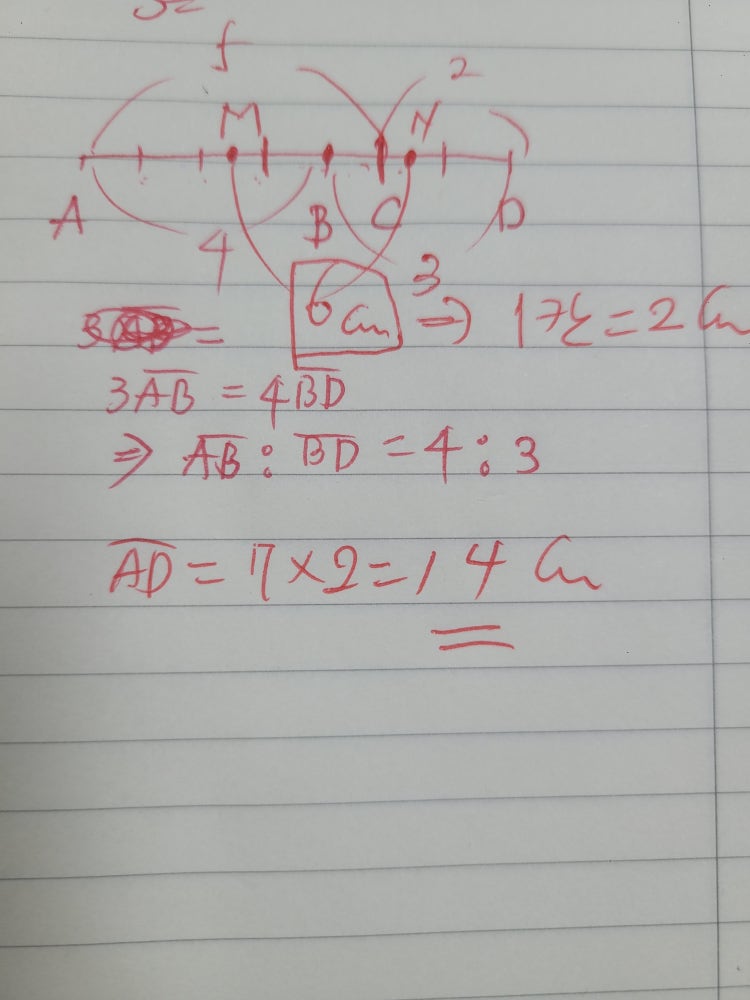 5 2
M N
A B C D
4 3
6 cm ⇒ 1칸 = 2 cm
=
3AB = 4BD
⇒ AB : BD = 4 : 3
AD = 7 × 2 = 14 cm